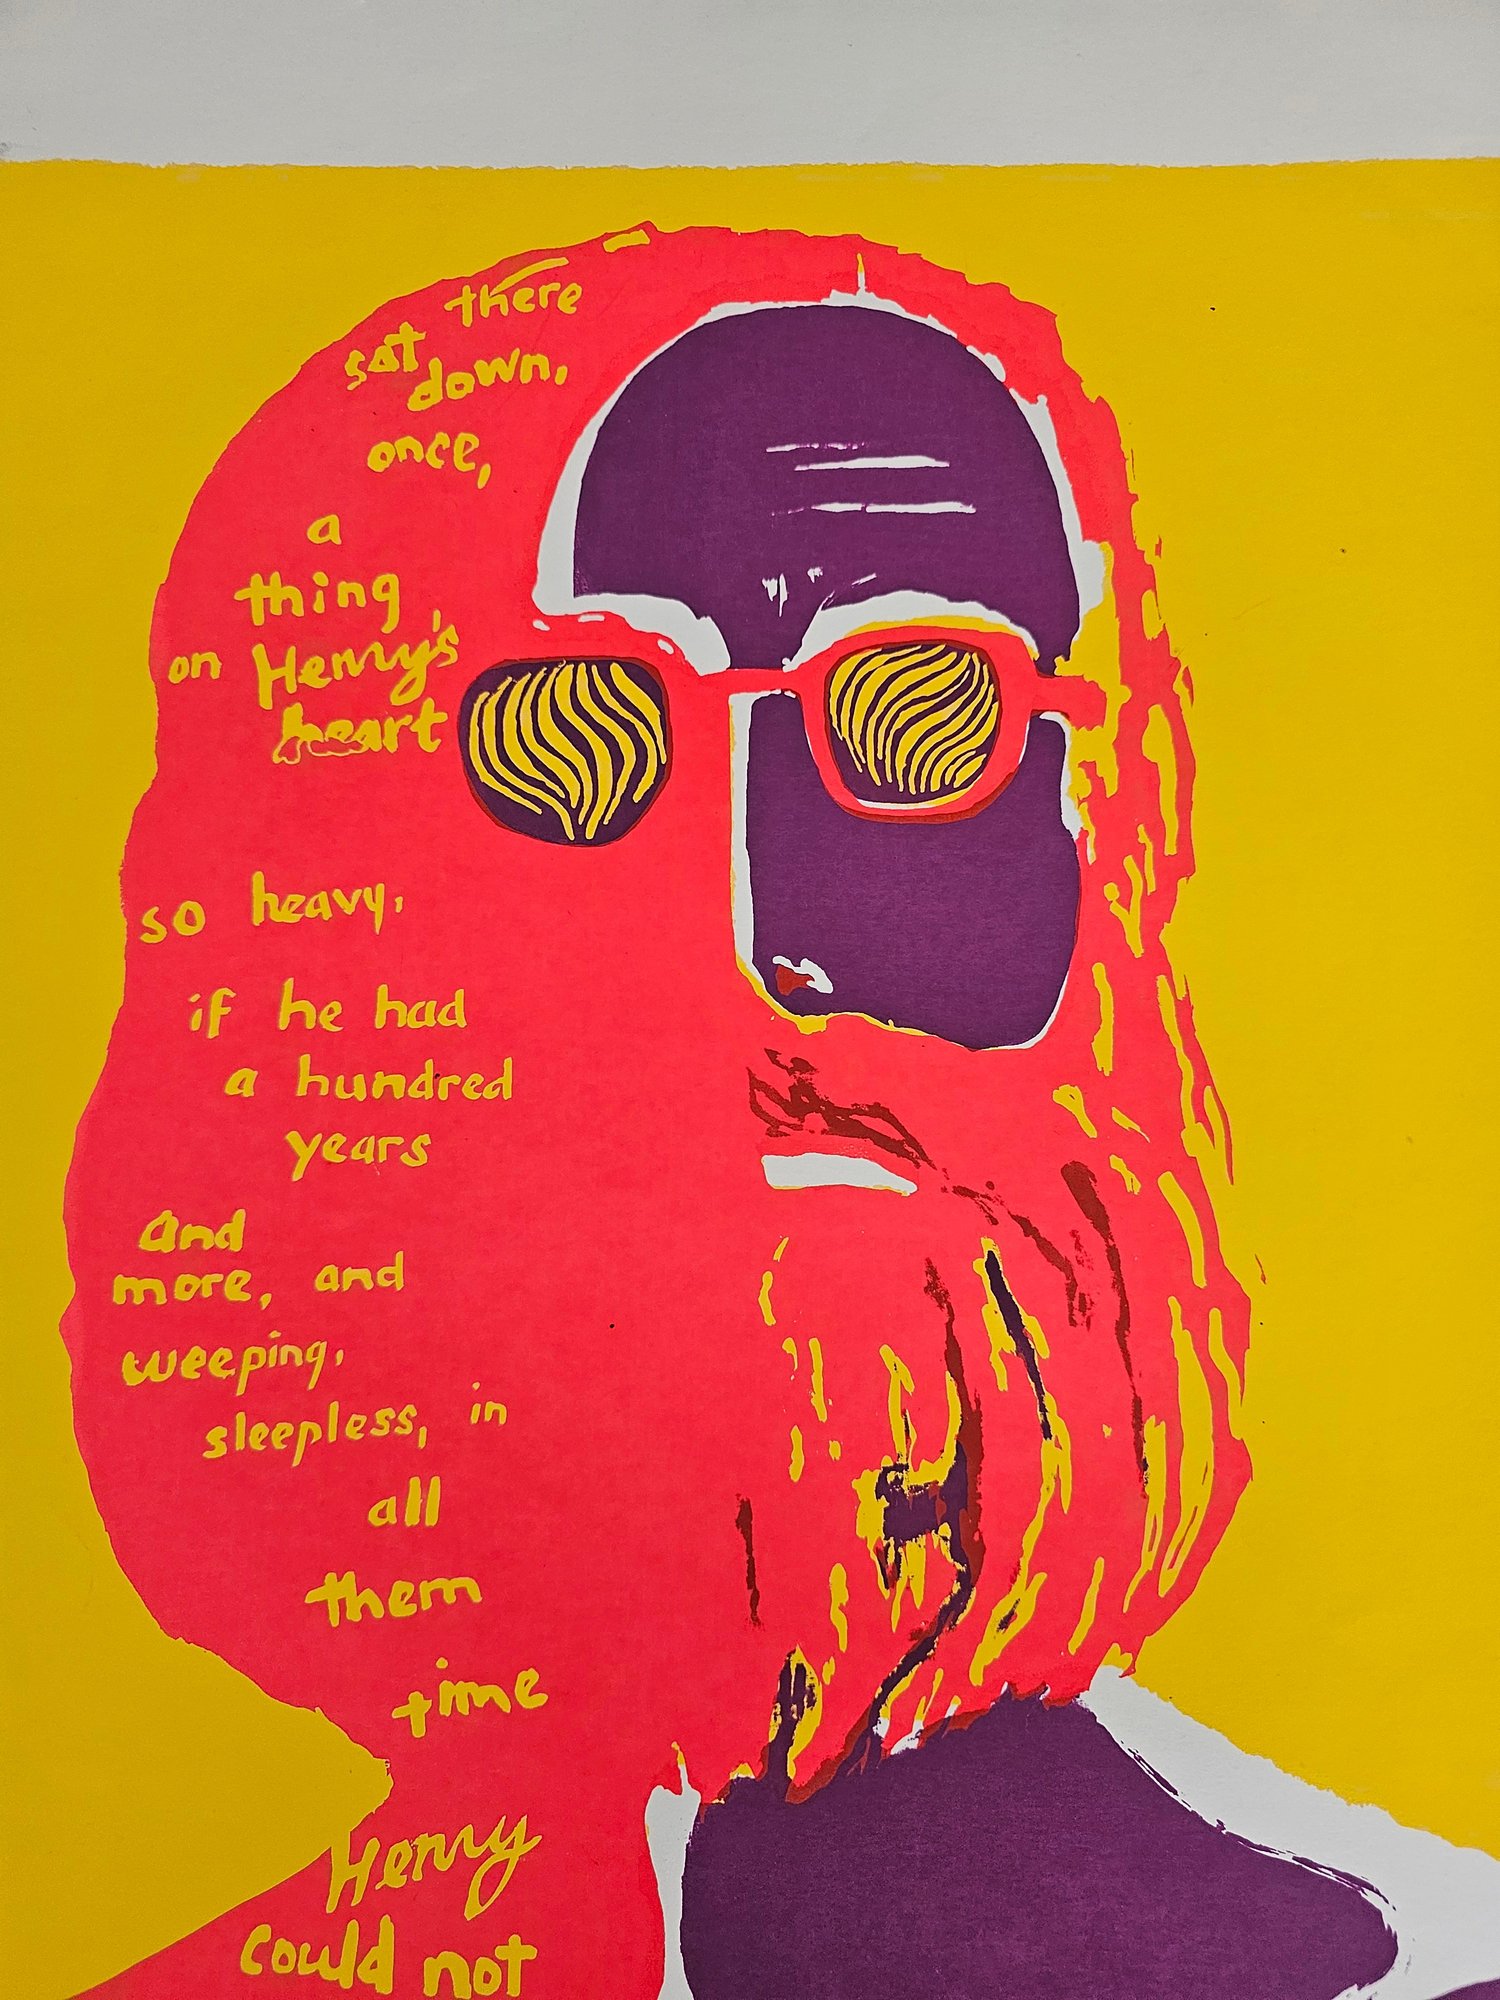 there
sat down,
once,
a
thing
on Henry's
heart
so heavy,
if he had
a hundred
years
and
more, and
weeping,
sleepless, in
all
them
time
Henry
could not